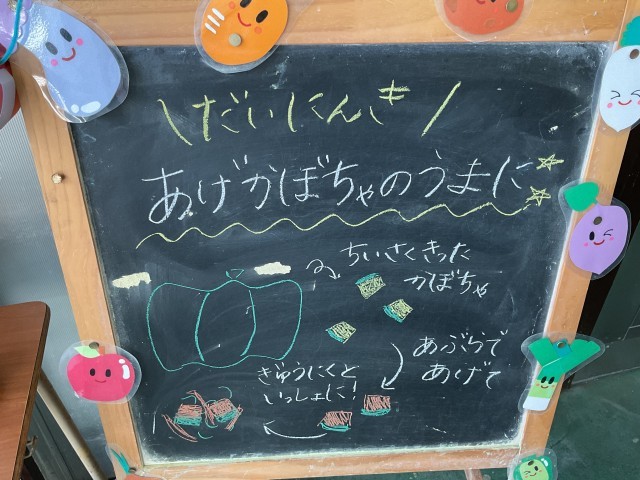 \だいにんき/
あげかぼちゃのうまに
ちいさくきった
かぼちゃ
あぶらで
あげて
ぎゅうにくと
いっしょに!